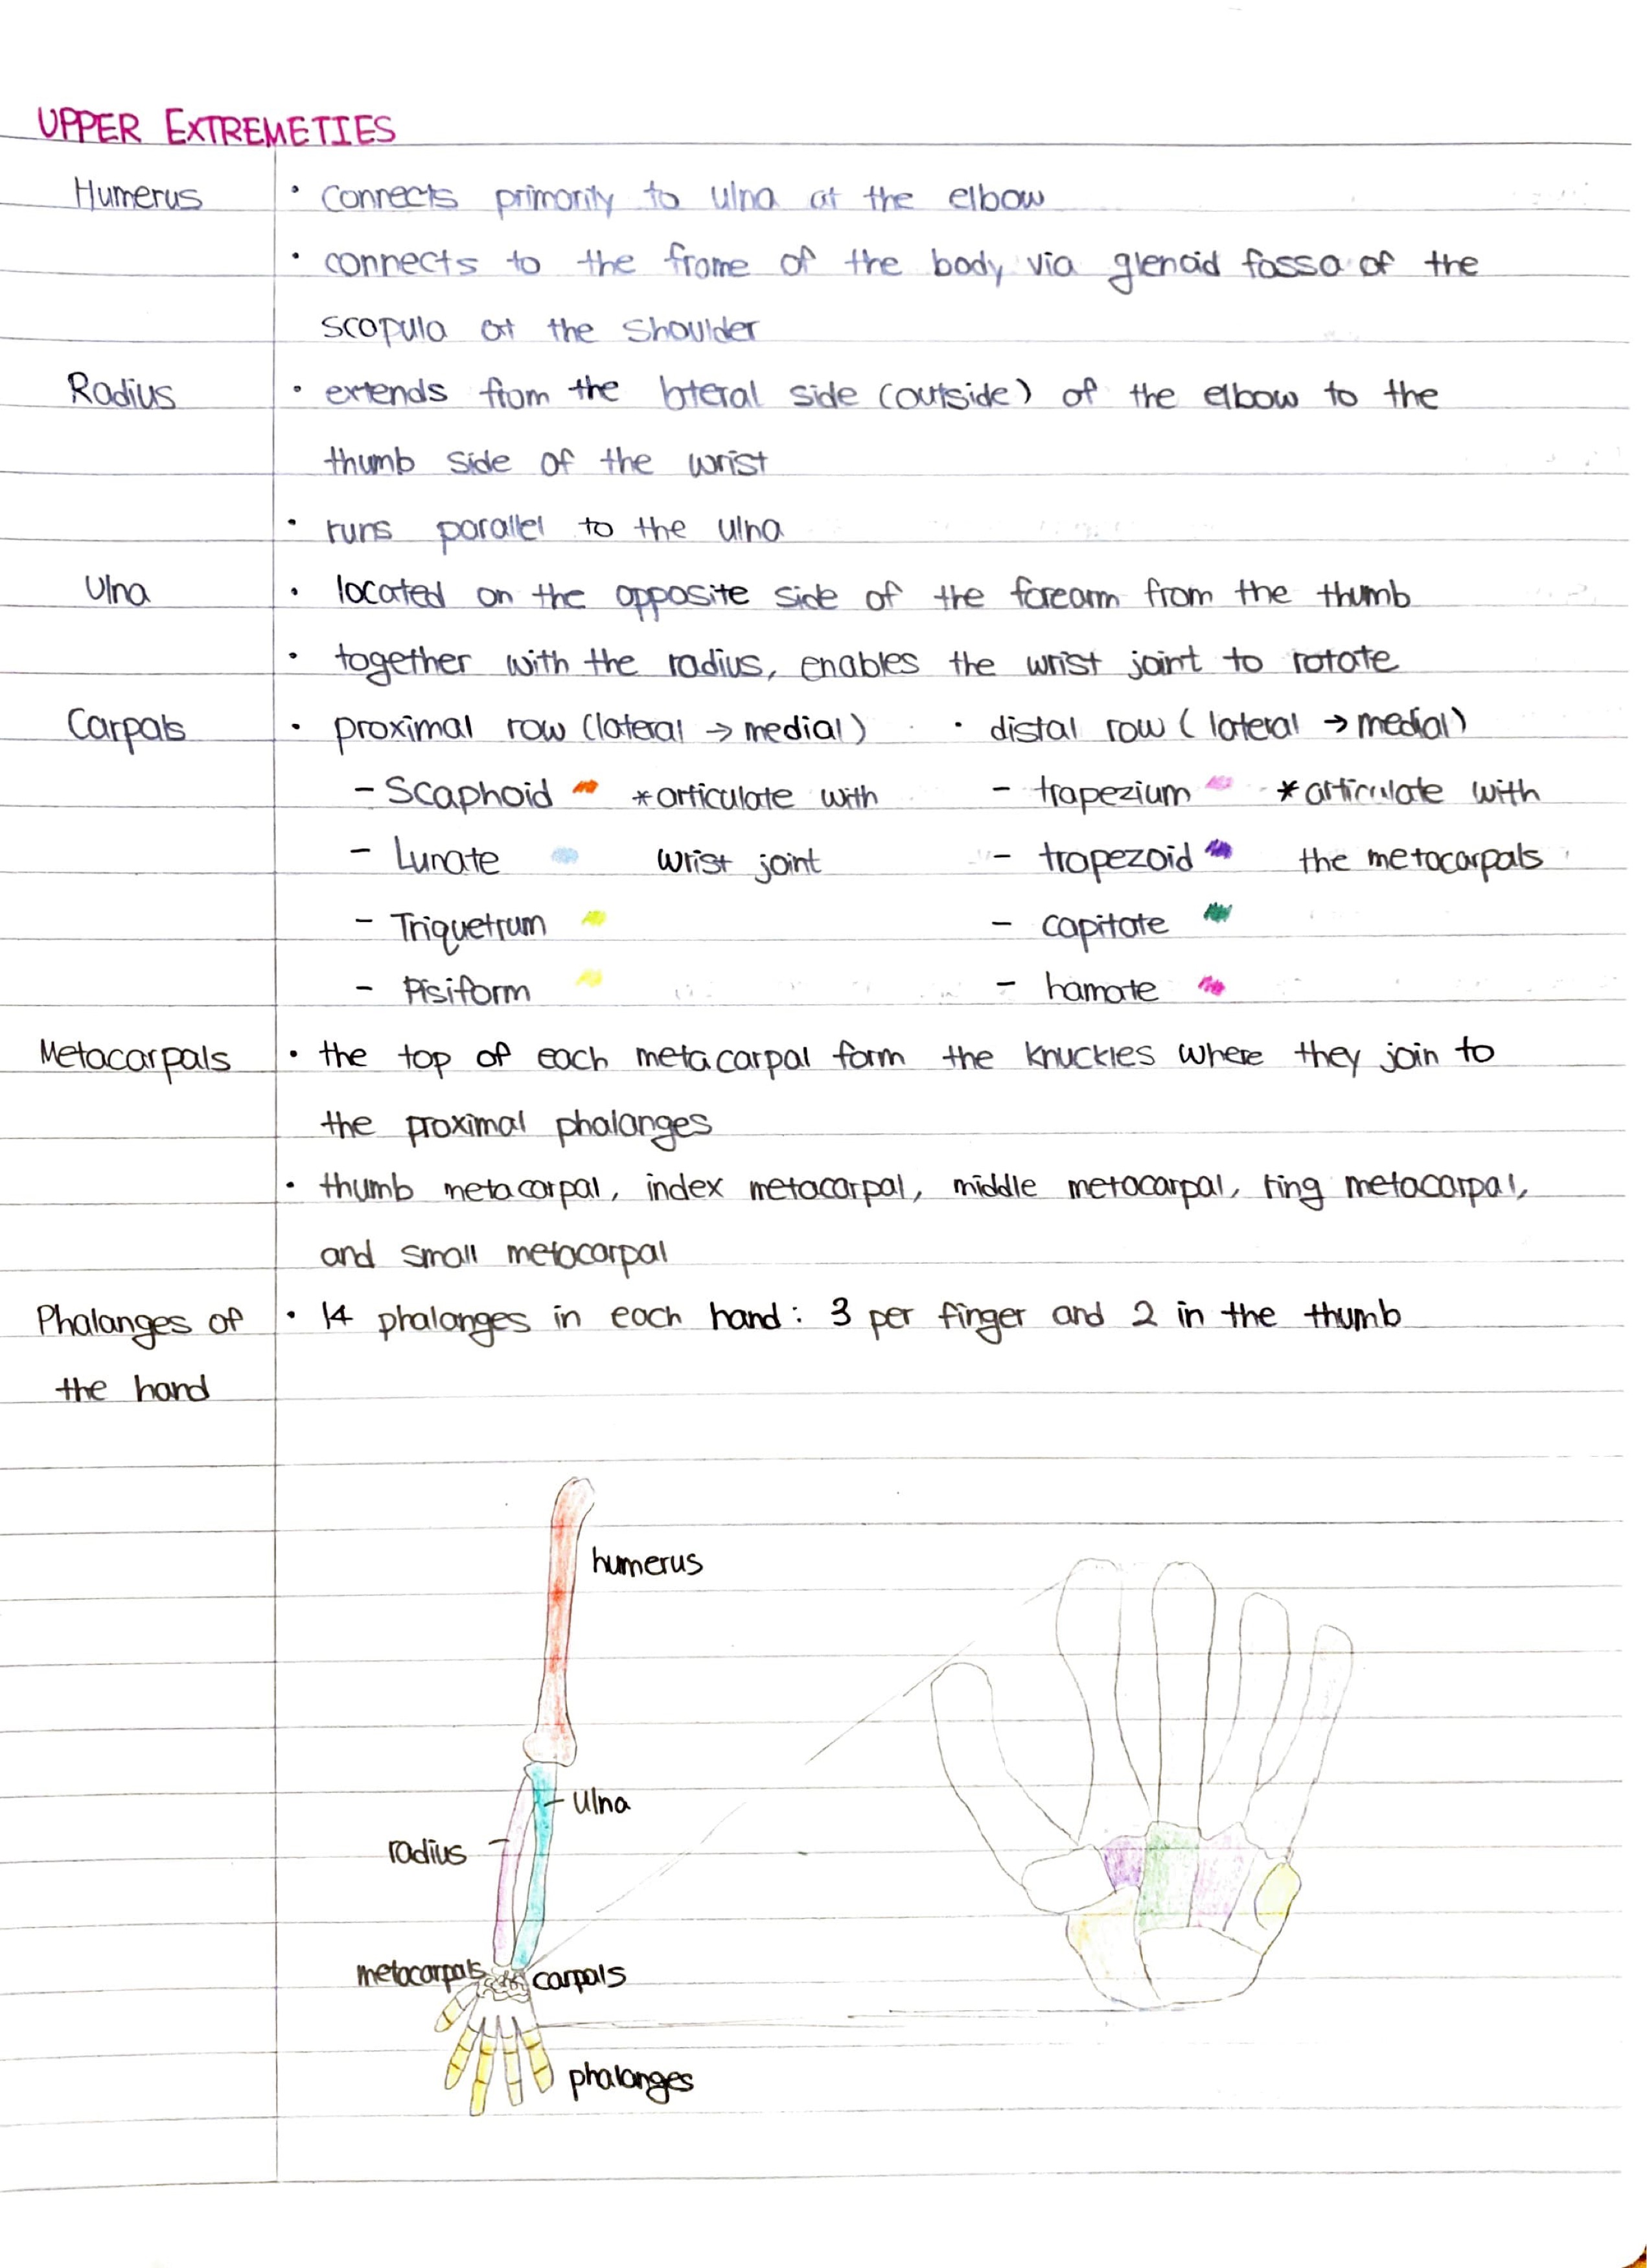 UPPER EXTREMETIES
Humerus • connects primarily to ulna at the elbow
• connects to the frame of the body via glenoid fossa of the
scapula at the shoulder
Radius • extends from the lateral side (outside) of the elbow to the
thumb side of the wrist
• runs parallel to the ulna
Ulna • located on the opposite side of the forearm from the thumb
• together with the radius, enables the wrist joint to rotate
Carpals • proximal row (lateral → medial) • distal row (lateral → medial)
- Scaphoid *articulate with - trapezium *articulate with
- Lunate wrist joint - trapezoid the metacarpals
- Triquetrum - capitate
- Pisiform - hamate
Metacarpals • the top of each metacarpal form the knuckles where they join to
the proximal phalanges
• thumb metacarpal, index metacarpal, middle metacarpal, ring metacarpal,
and small metacarpal
Phalanges of • 14 phalanges in each hand: 3 per finger and 2 in the thumb
the hand
humerus
ulna
radius
metacarpals carpals
phalanges